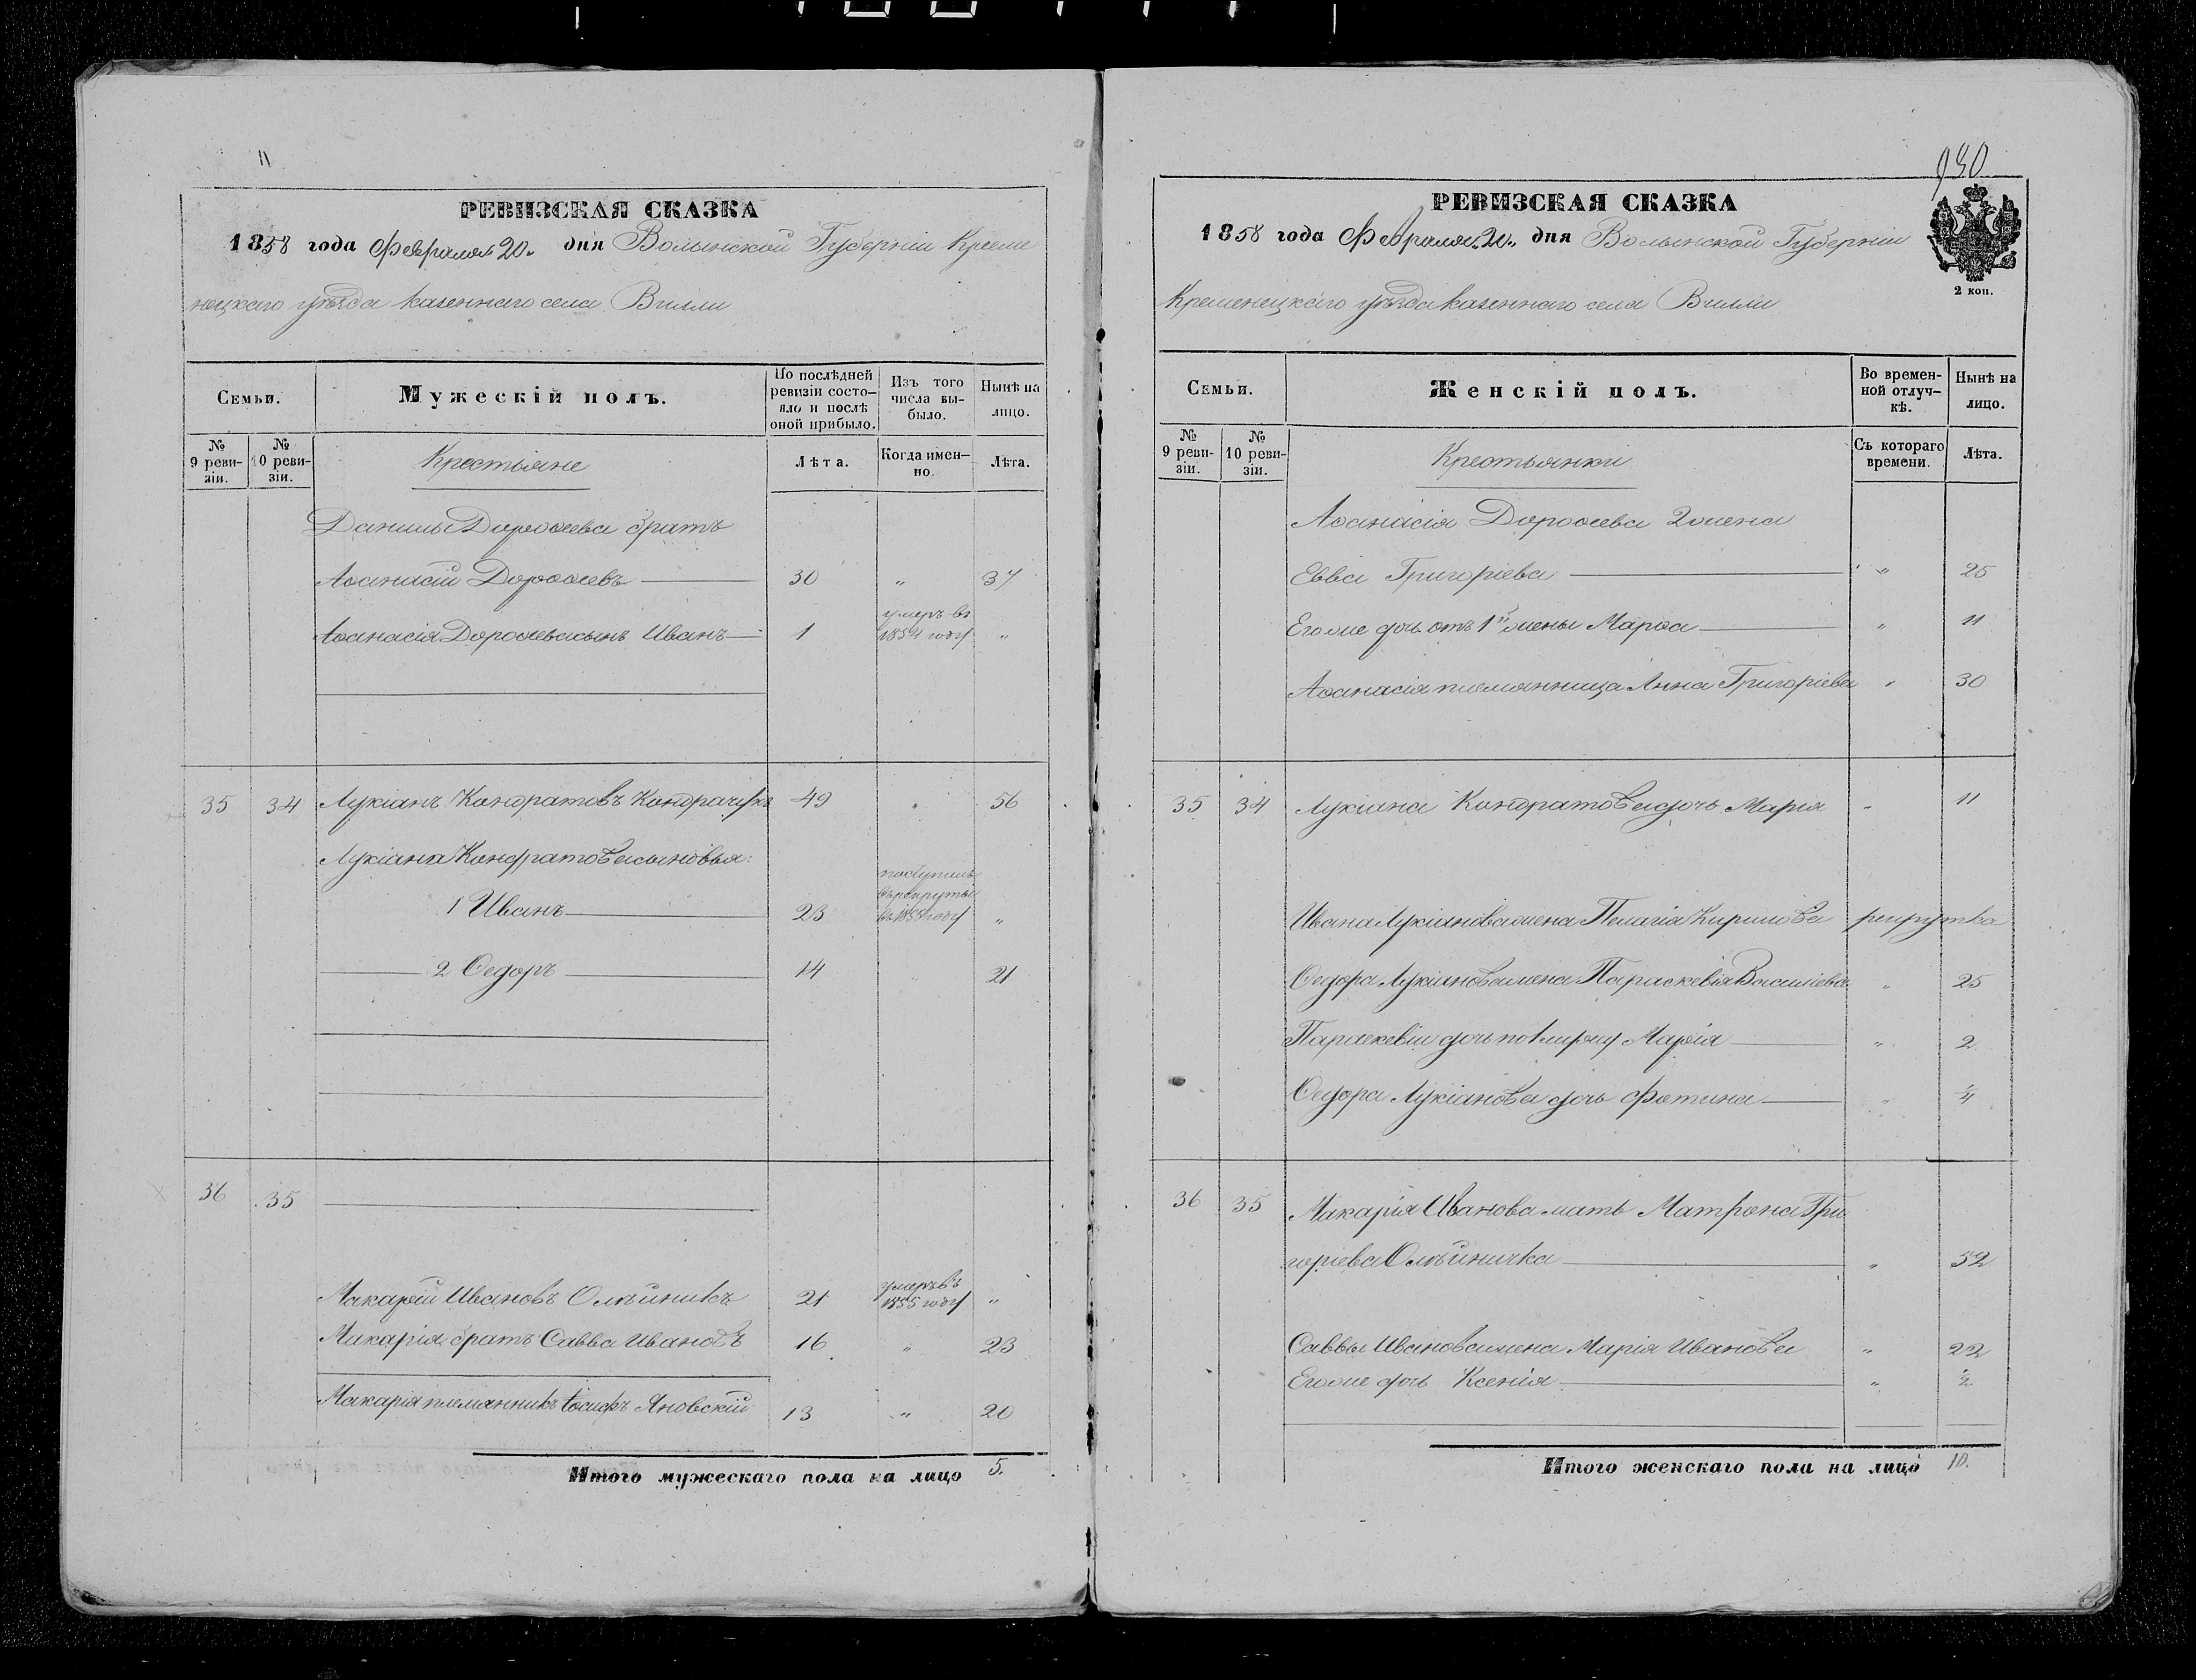 РЕВИЗСКАЯ СКАЗКА
1858 года Февраля 20. дня Волынской Губерніи Креме
нецкаго уѣзда казеннаго села Вилли
Семьи.
Мужескій полъ.
По послѣдней ревизіи состо-
яло и послѣ
оной прибыло.
Изъ того
числа вы-
было.
Нынѣ на
лицо.
№
9 реви-
зіи.
№
10 реви-
зіи.
Крестьяне
Лѣта.
Когда имен-
но.
Лѣта.
Данилы Дороѳеева братъ
Аѳанасій Дороѳеевъ 30 „ 37
Аѳанасія Дороѳеева сынъ Иванъ 1 умеръ въ 1854 году „
35 34 Лукіанъ Кондратовъ Кондрачукъ 49 „ 56
Лукіана Кондратова сыновья:
1 Иванъ 23 поступилъ въ рекруты въ году „
2 Ѳедоръ 14 „ 21
36 35
Макарій Ивановъ Олѣйникъ 21 умеръ въ 1855 году „
Макарія братъ Савва Ивановъ 16 „ 23
Макарія племянникъ Іосифъ Яновскій 13 „ 20
Итого мужескаго пола на лицо 5.
930
РЕВИЗСКАЯ СКАЗКА
1858 года Февраля 20. дня Волынской Губерніи
Кременецкаго уѣзда казеннаго села Вилли
2 коп.
Семьи.
Женскій полъ.
Во времен-
ной отлуч-
кѣ.
Нынѣ на
лицо.
№
9 реви-
зіи.
№
10 реви-
зіи.
Крестьянки
Съ котораго
времени.
Лѣта.
Аѳанасія Дороѳеева 2 жена
Евва Григоріева „ 25
Его же дочь отъ 1й жены Марѳа „ 11
Аѳанасія племянница Анна Григоріева „ 30
35 34 Лукіана Кондратова дочь Марія „ 11
Ивана Лукіанова жена Пелагія Кирилова рекрутка
Ѳедора Лукіанова жена Параскевія Василіева „ 25
Параскевіи дочь по 1 мужу Марія „ 2
Ѳедора Лукіанова дочь Фотина „
36 35 Макарія Иванова мать Матрона Гри
горіева Олѣйничка „ 52
Саввы Иванова жена Марія Иванова „ 22
Его же дочь Ксенія „
Итого женскаго пола на лицо 10.